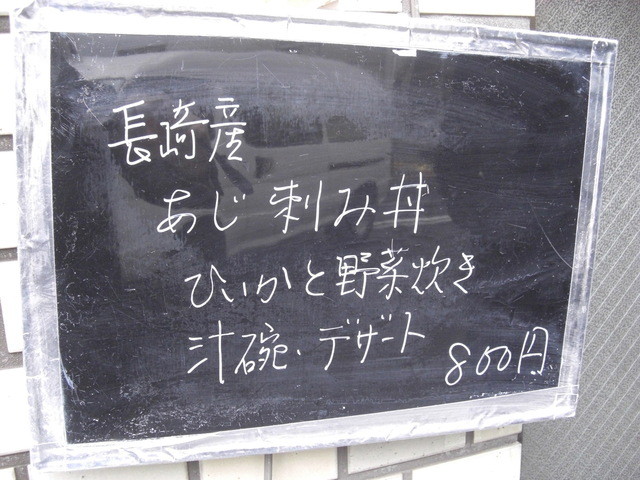 長崎産
あじ刺み丼
ひいかと野菜炊き
汁碗、デザート
800円